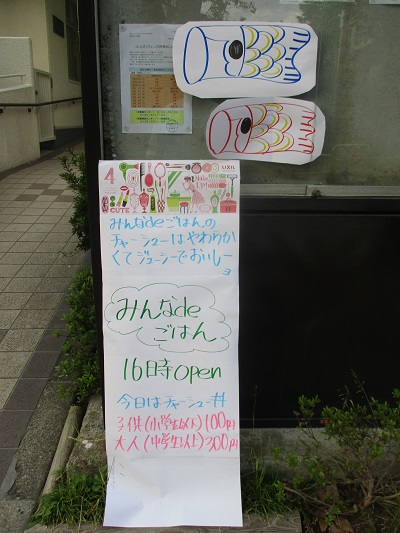 4
LIXIL
Make
UP!
CUTE
みんなdeごはんの
チャーシューはやわらか
くてジューシーでおいしー
ョ
みんなde
ごはん
16時open
今日はチャーシュー丼
子供(小学生以下)100円
大人(中学生以上)300円